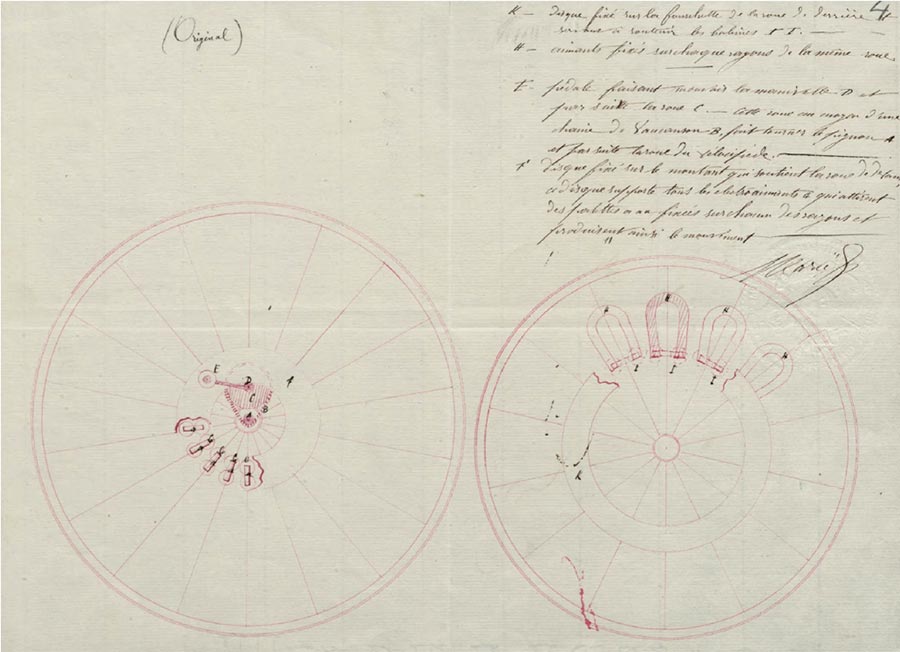 (Original)
4
K — disque fixé sur la fourchette de la roue de derrière
servant à soutenir les bobines I I. —
H — aimants fixés sur chaque rayons de la même roue.
E — pédale faisant mouvoir la manivelle D et
par suite la roue C. — Cette roue au moyen d'une
chaine de Vaucanson B. fait tourner le pignon A
et par suite la roue du vélocipède.
F disque fixé sur le montant qui soutient la roue de devant,
ce disque supporte tous les électroaimants G qui attirent
des palettes a a a fixées sur chacun des rayons et
produisent ainsi le mouvement
E
D
C
B
A
H
H
H
H
I
I
I
K